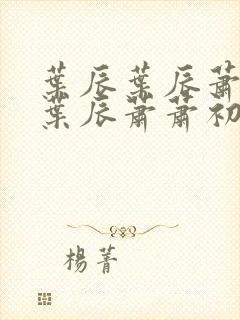 葉辰葉辰蕭
葉辰蕭蕭初
楊菁